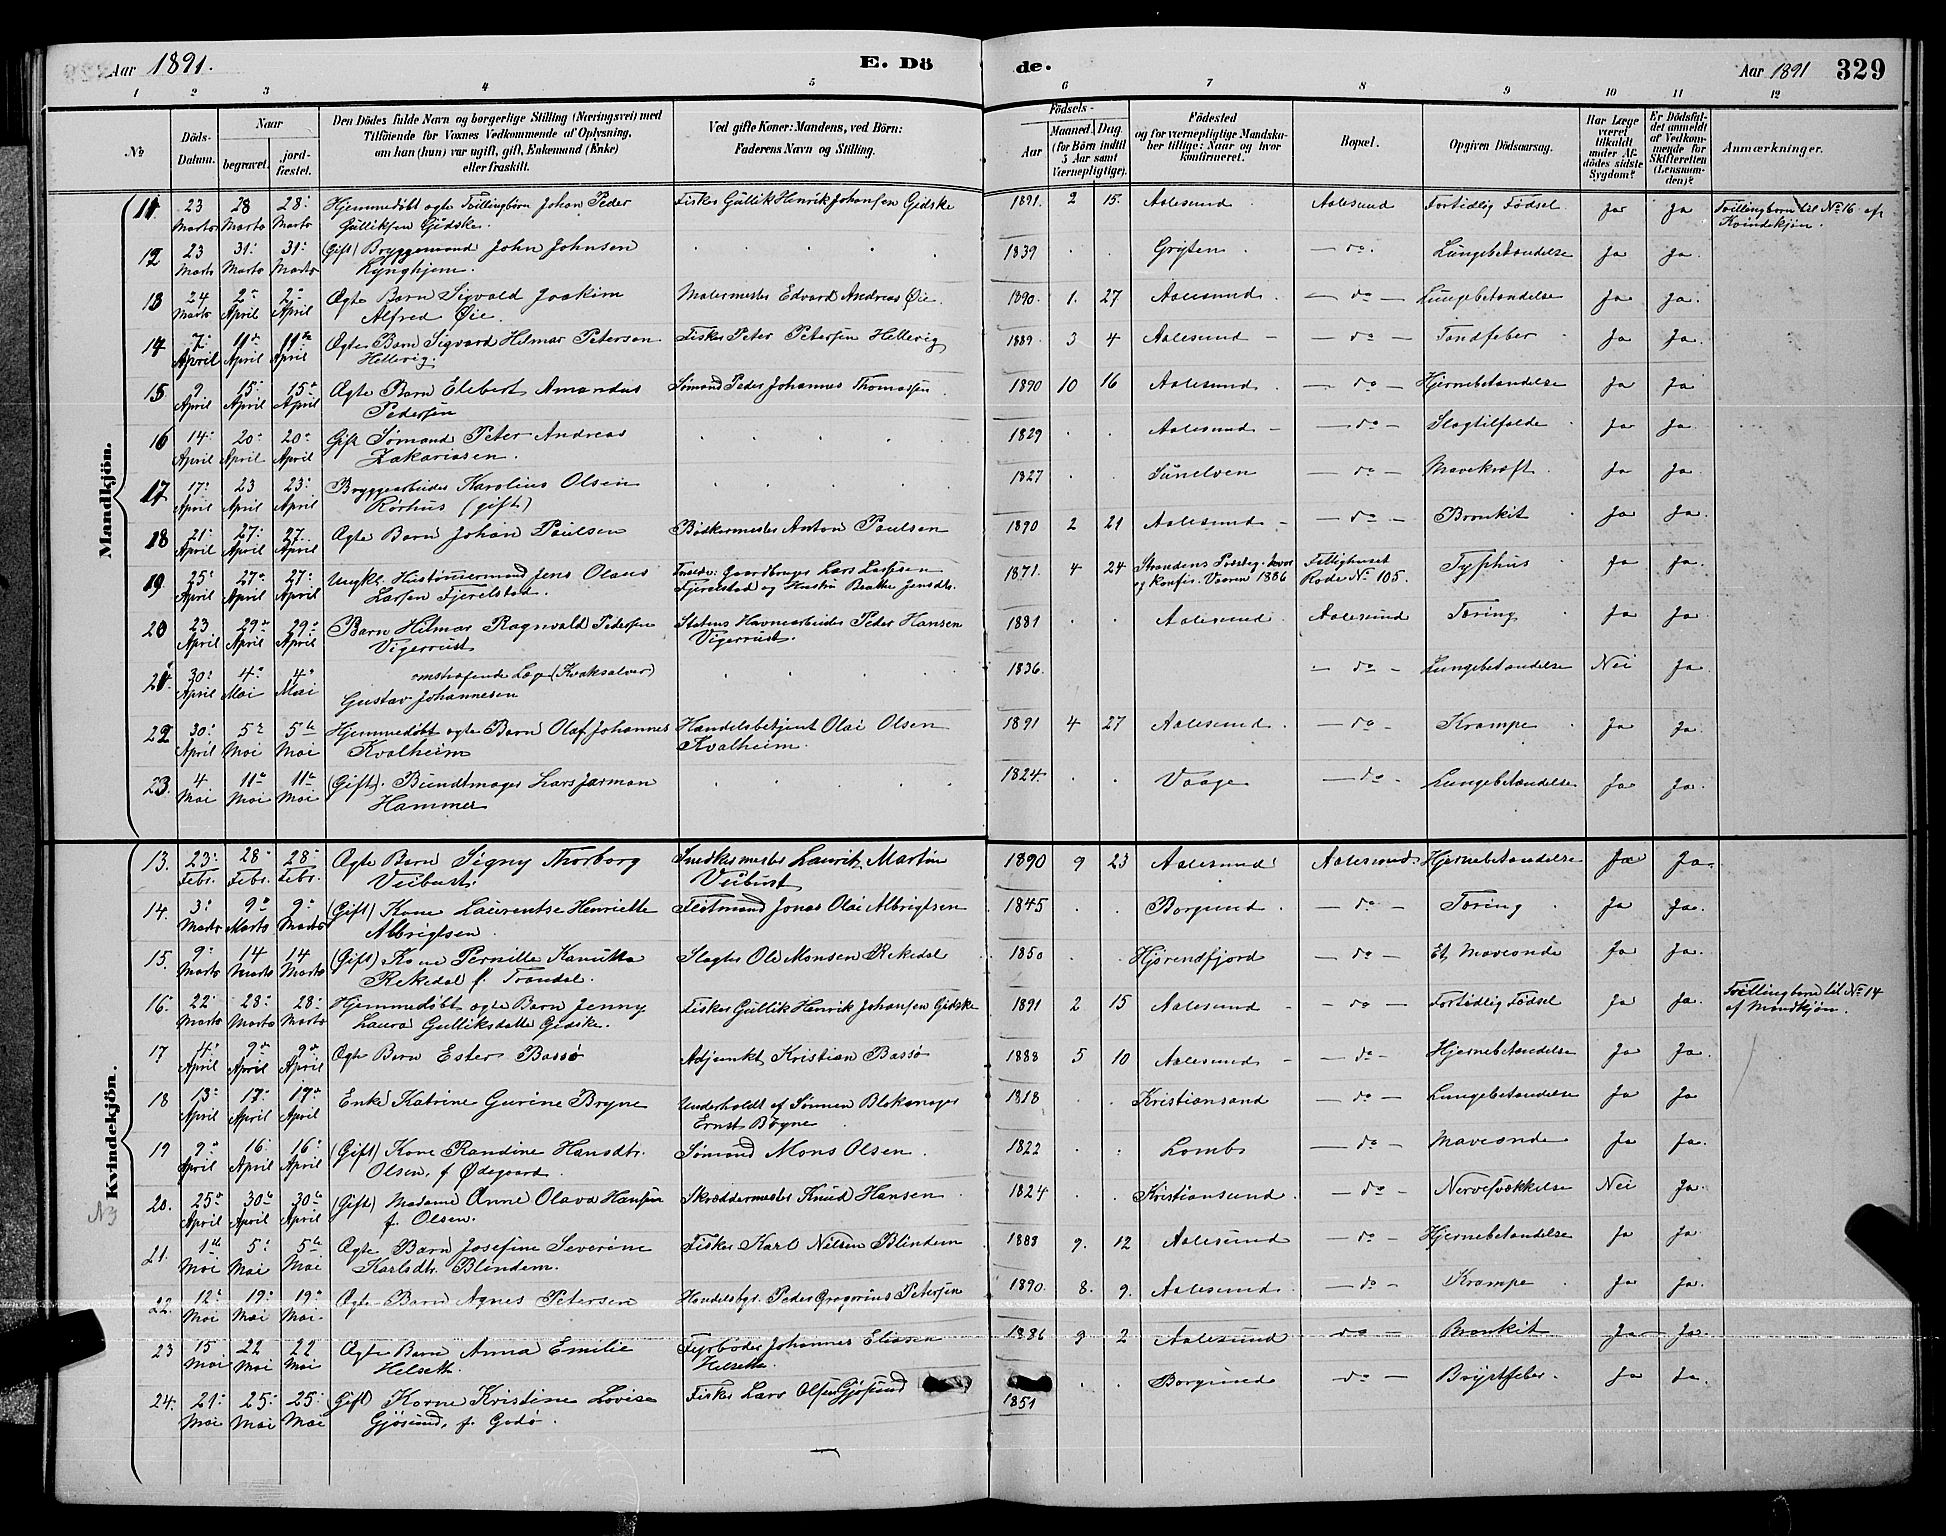 Aar 1891. E. Dö
de. Aar 1891 329
1 2 3 4 5 6 7 8 9 10 11 12
No
Döds-Datum.
Naar
begravet.
jord-fæstet.
Den Dödes fulde Navn og borgerlige Stilling (Næringsvei) med
Tilföiende for Voxnes Vedkommende af Oplysning,
om han (hun) var ugift, gift, Enkemand (Enke)
eller fraskilt.
Ved gifte Koner: Mandens, ved Börn:
Faderens Navn og Stilling.
Födsels-
Aar
Maaned. Dag.
(for Börn indtil
5 Aar samt
Værnepligtige).
Födested
og for værnepligtige Mandska-
ber tillige: Naar og hvor
konfirmeret.
Bopæl.
Opgiven Dödsaarsag.
Har Læge
været
tilkaldt
under Af-
dödes sidste
Sygdom?
Er Dödsfal-
det anmeldt
af Vedkom-
mende for
Skifteretten
(Lensman-
den)?
Anmærkninger.
Mandkjön.
11 23 Marts 28 Marts 28 Marts Hjemmedöbt ægte Tvillingbörn Johan Peder Fisker Gullik Henrik Johansen Gidske 1891. 2 15 Aalesund Aalesund Fortidlig Födsel Ja Ja Tvillingbarn til No 16 af
Gulliksen Gidske. Kvindekjøn.
12 23 Marts 31 Marts 31 Marts (Gift) Bryggemand John Johnsen 1839 Gryten do Lungebetændelse Ja Ja
Lynghjem.
13 24 Marts 2 April 2 April Ægte Barn Sigvald Joakim Malermester Edvard Andreas Øie 1890. 1. 27 Aalesund do Lungebetændelse Ja Ja
Alfred Øie.
14 7 April 11 April 11 April Ægte Barn Sigvard Hilmar Petersen Fisker Peter Petersen Hellevig 1889 3 4 Aalesund do Tandfeber Ja Ja
Hellevig.
15 9 April 15 April 15 April Ægte Barn Elebert Amandus Sömand Peder Johannes Thomassen 1890 10 16 Aalesund do Hjernebetændelse Ja Ja
Pedersen
16 14 April 20 April 20 April Gift Sömand Peter Andreas 1829 Aalesund do Slagtilfælde Ja Ja
Zakariasen.
17 17 April 23 April 23 April Bryggearbeider Karolius Olsen 1827 Sunelven do Mavekræft Ja Ja
Rörhus (gift)
18 21 April 27 April 27 April Ægte Barn Johan Paulsen Bödkermester Anton Paulsen 1890 2 21 Aalesund do Bronkit Ja Ja
19 25 April 27 April 27 April Ungkl. Hustömmermand Jens Olaus Gaardbruger Lars Larsen 1871. 4 24 Strandens Præsteg. Fattighuset Typhus Ja Ja
Larsen Fjerelstad. Fjerelstad og Hustru Beathe Jensdtr. og Konfir. Vaaren 1886 Rode No 105.
20 23 April 29 April 29 April Barn Hilmar Ragnvald Pedersen Statens Havnearbeider Peder Hansen 1881 Aalesund Aalesund Tæring Ja Ja
Vigerust Vigerrust.
21 30 April 4 Mai 4 Mai omstreifende Læge (Kvaksalver) 1836. do Lungebetændelse Nei Ja
Gustav Johannesen
22 30 April 5 Mai 5 Mai Hjemmedöbt ægte Barn Olaf Johannes Handelsbetjent Olai Olsen 1891 4 27 Aalesund do Krampe Ja Ja
Kvalheim Kvalheim.
23. 4 Mai 11 Mai 11 Mai (Gift). Bundtmager Lars Jarman 1824 Vaage do Lungebetændelse Ja Ja
Hammer
Kvindekjön.
13. 23 Febr. 28 Febr. 28 Febr. Ægte Barn Signy Thorborg Snedkermester Laurits Martin 1890 9 23 Aalesund Aalesund Hjernebetændelse Ja Ja
Veibust. Veibust
14. 3 Marts 9 Marts 9 Marts (Gift) Kone Laurentse Henriette Flotmand Jonas Olai Albrigtsen 1845 Borgund do Tæring Ja Ja
Albrigtsen.
15. 9 Marts 14 Marts 14 Marts (Gift) Kone Pernille Kanutta Slagter Ole Monsen Rekedal 1850 Hjörendfjord do Et Maveonde Ja Ja
Rekedal f. Trandal.
16. 22 Marts 28 Marts 28 Marts Hjemmedöbt ægte Barn Jenny Fisker Gullik Henrik Johansen Gidske 1891 2 15 Aalesund do Fortidlig Födsel Ja Ja Tvillingbarn til No 14
Laura Gulliksdatter Gidske. af Mandkjøn.
17 4 April 9 April 9 April Ægte Barn Ester Bassö Adjunkt Kristian Bassö 1888 5 10 Aalesund do Hjernebetændelse Ja Ja
18 13 April 17 April 17 April Enke Katrine Gurine Bryne Underholdt af Sönnen Blokmager 1818 Kristiansand do Lungebetændelse Ja Ja
Ernst Bryne
19 9 April 16 April 16 April (Gift) Kone Randine Hansdtr. Sömand Mons Olsen 1822 Lomb do Maveonde Ja Ja
Olsen, f Ødegaard.
20. 25 April 30 April 30 April (Gift) Madame Anne Olava Hansen Skræddermester Knud Hansen 1824 Kristiansund do Nervesvækkelse Nei Ja
f. Olsen.
21. 1 Mai 5 Mai 5 Mai Ægte Barn Josefine Severine Fisker Karl Nilsen Blindem 1888 9. 12 Aalesund do Hjernebetændelse Ja Ja
Karlsdtr. Blindem.
22. 12 Mai 19 Mai 19 Mai Ægte Barn Agnes Petersen Handelsbgr. Peder Gregorius Petersen 1890 8. 9. Aalesund do Krampe Ja Ja
23 15 Mai 22 Mai 22 Mai Ægte Barn Anna Emilie Fyrböder Johannes Eliassen 1886 9 2 Aalesund do Bronkit Ja Ja
Helseth. Helseth.
24. 21 Mai 25 Mai 25 Mai Gift Kone Kristine Lovise Fisker Lars Olsen Gjösund 1851 Borgund do Brystfeber Ja Ja
Gjösund, f. Godö.